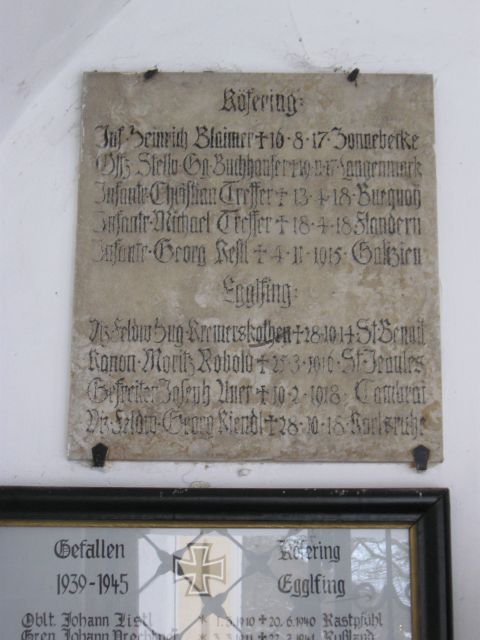 Köfering:
Inf. Heinrich Blaimer + 16·8·17· Zonnebecke
Offz. Stello. Gg. Buchhauser + 19·11·17 Langenmark
Infante. Christian Treffer + 13·4·18· Burquoy
Infante. Michael Treffer + 18·4·18 Flandern
Infante. Georg Kestl + 4·11·1915· Galizien
Egglfing:
Viz. Feldw. Hug. Kremerskothen + 28·10·14 St. Benoit
Kanon. Moritz Robold + 25·3·1916· St.
Gefreiter Joseph Auer + 10·2·1918· Cambrai
Viz. Feldw. Georg Kiendl + 28·10·18· Karlsruhe
Gefallen Köfering
1939-1945 Egglfing
Oblt. Johann Listl * 1.5.1910 + 20.6.1940 Rastpfühl
Gren. Johann